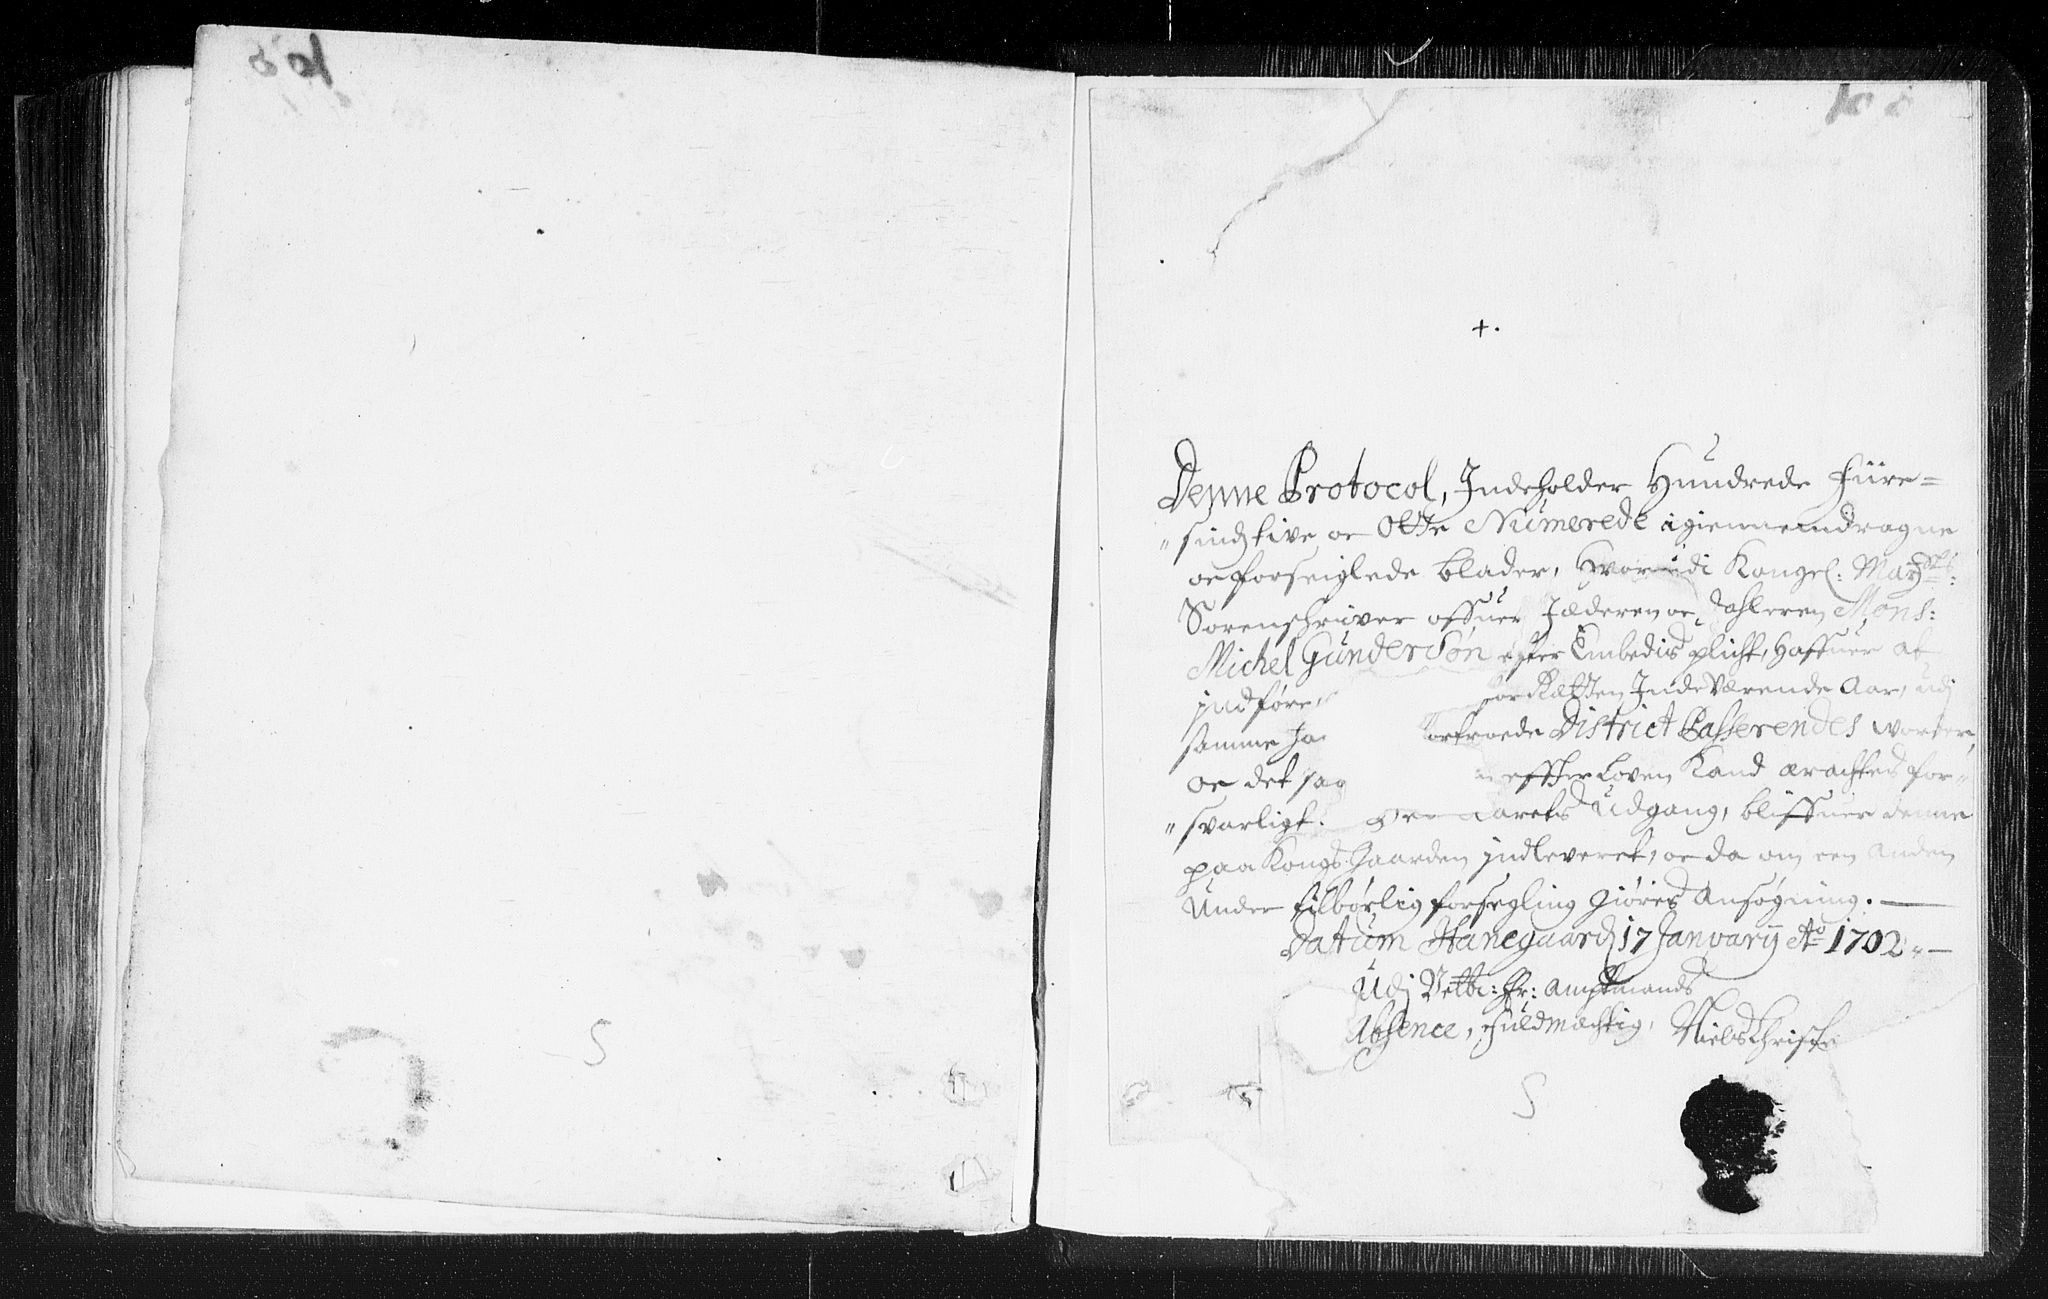 188
+.
Denne Protocol, Indeholder Hundrede Fiire=
"sindstive oc Otte Numerede igiennemdragne
oc forseiglede blader, Hvorudi Kongel: Mayts:
Sorenschriver offuer Jæderen oc Dahlerne Mons:
Michel Gunderson efter Embedis plicht, Haffuer at
jndføre, for Rætten IndeVærende Aar, udj
samme District Passerendes vorder,
oc det saa effter Loven Kand erachtes for-
"svarligt. aarets Udgang, bliffuer denne
paa Kongs-Gaarden jndleveret, oc da om een anden
Under tilbørlig forsegling Giøres Ansøgning.
Datum Stanegaard 17 Januarij Ao 1702.
Udj Velbr: Hr: Amptmands
Absence, Fuldmæchtig,
Niels Christe
S
S